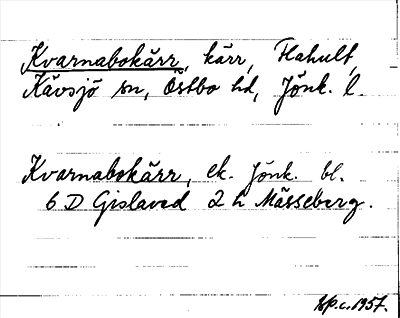 Kvarnabokärr, kärr, Flahult,
Kävsjö sn, Östbo hd, Jönk. l.
Kvarnabokärr, ek. Jönk. bl.
6 D Gislaved 2 h Mässeberg.
Sp.c. 1957.